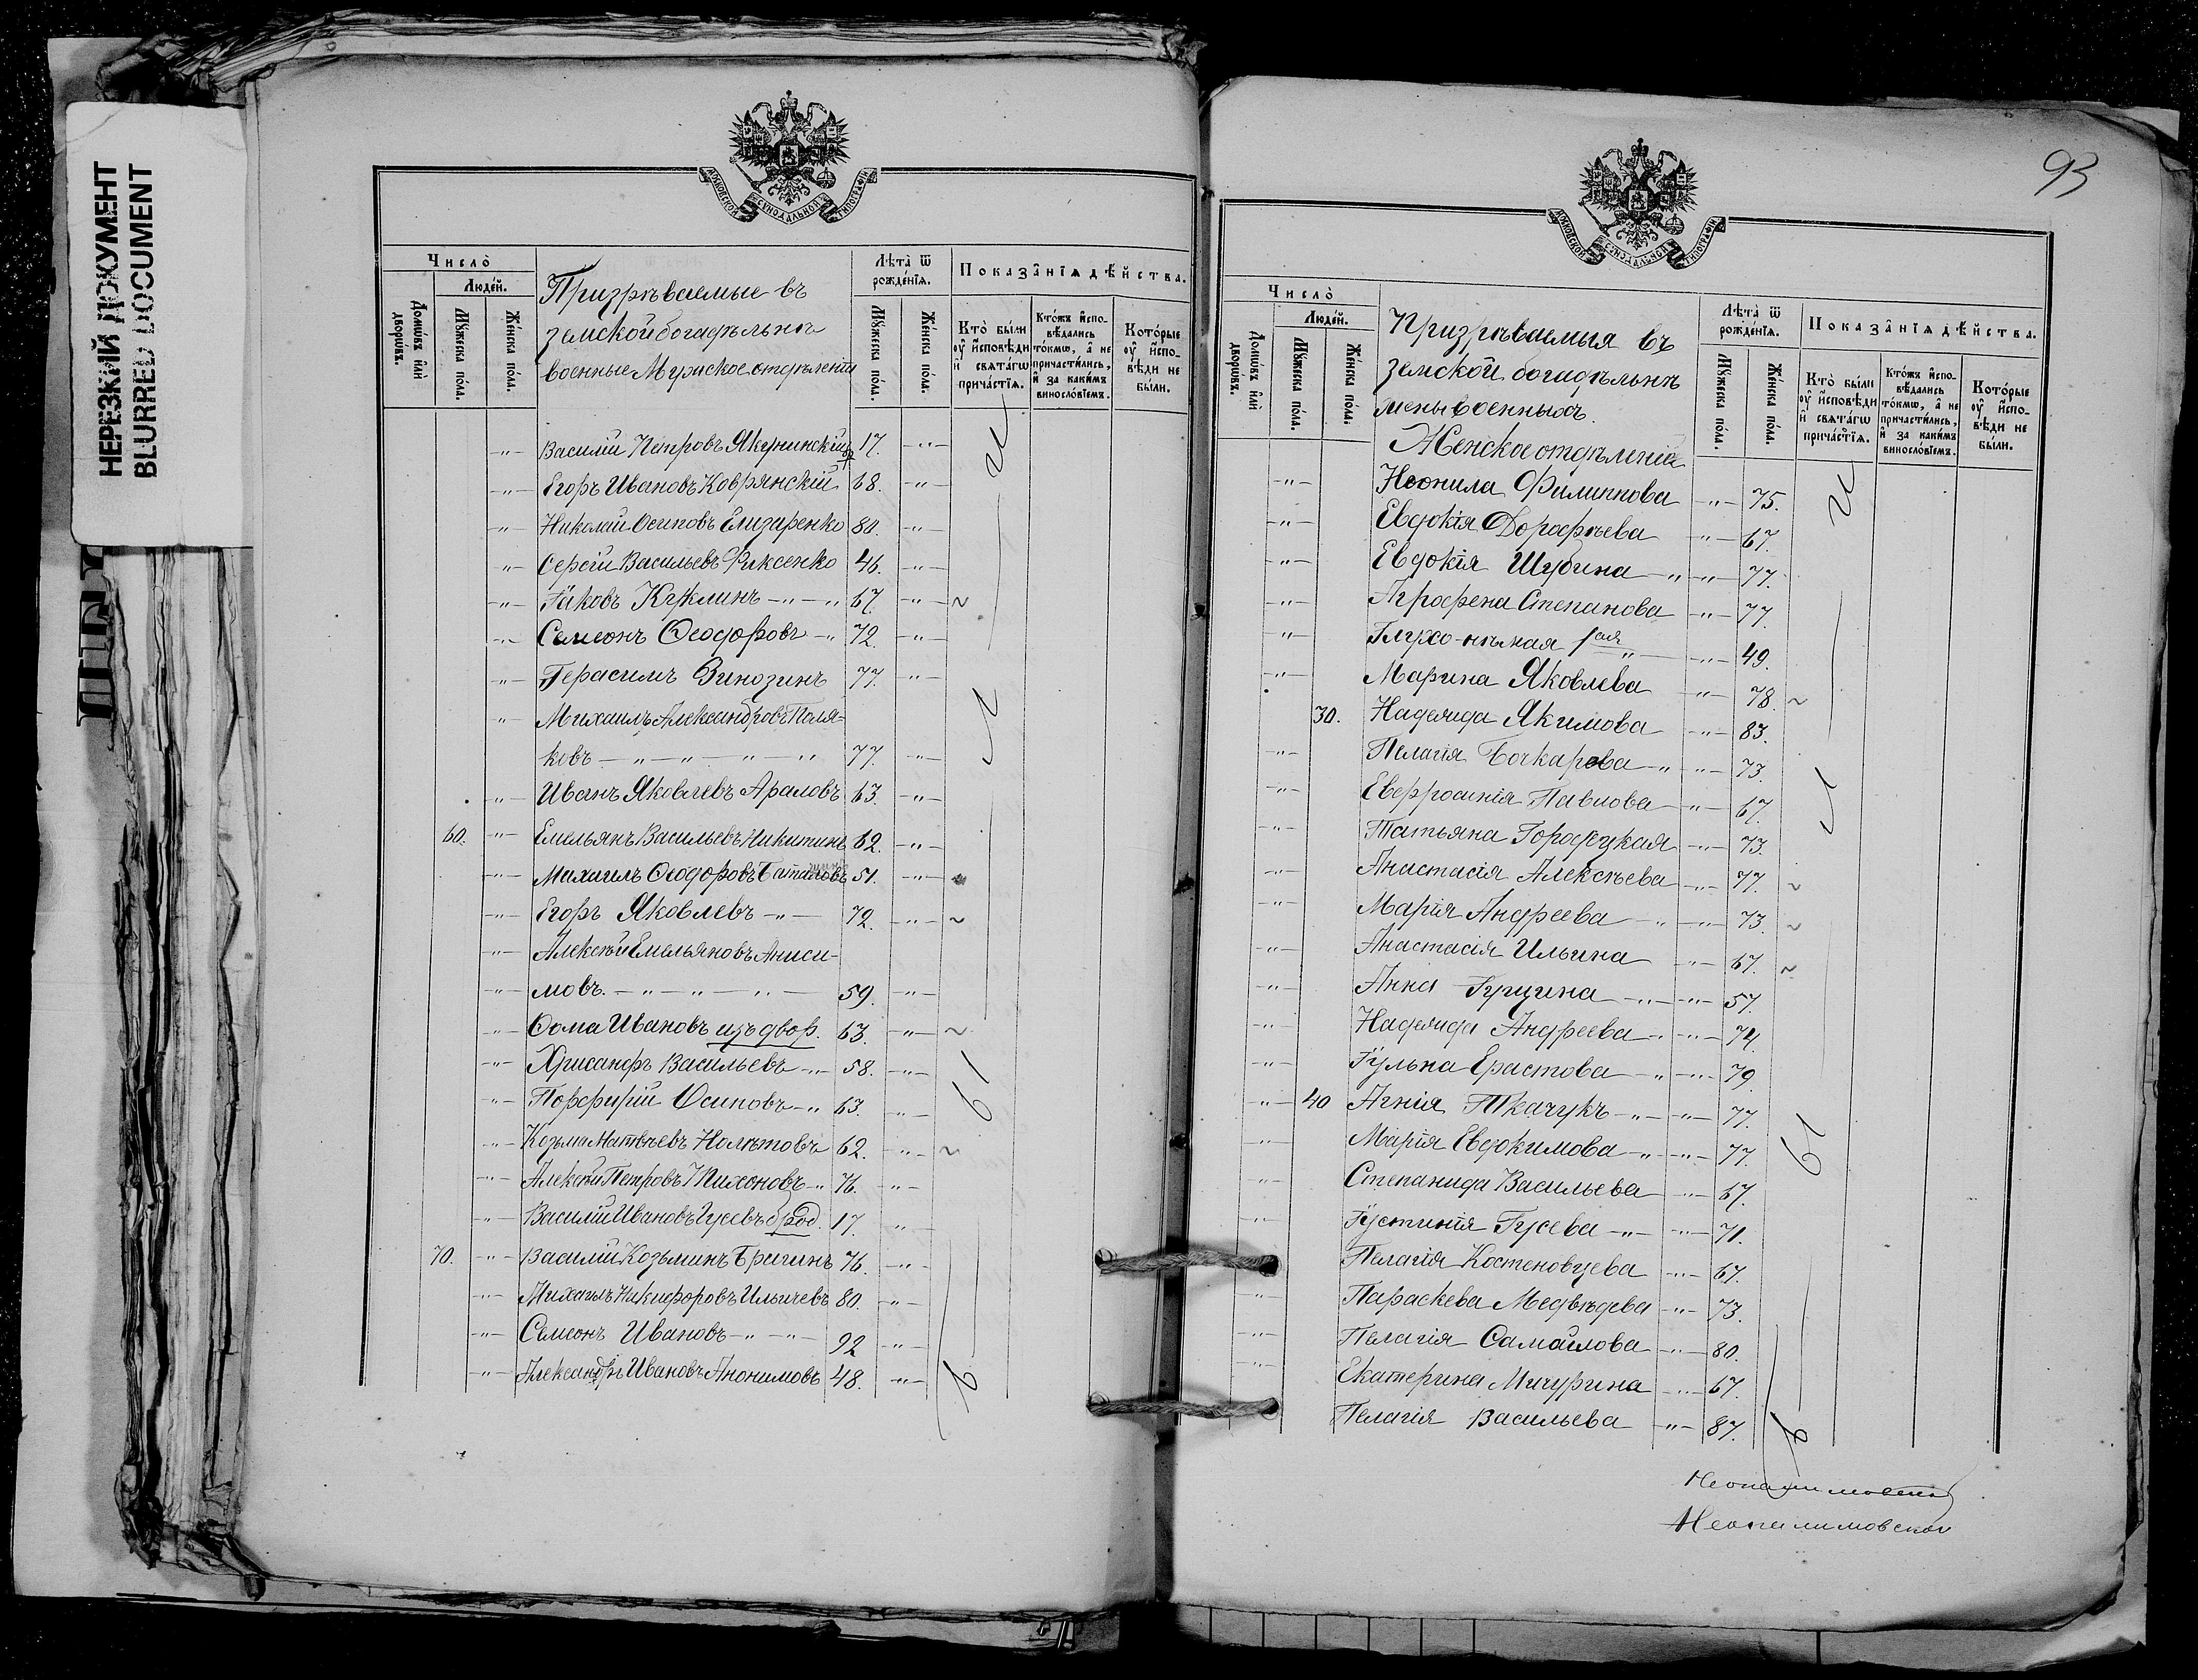 НЕРЕЗКИЙ ДОКУМЕНТ
BLURRED DOCUMENT
МОСКОВСКОЙ СѴНОДАЛЬНОЙ ТИПОГРАФІИ
Число̀
Людéй.
Домѡ́въ и҆лѝ дворѡ́въ.
Мꙋ́жеска по́ла.
Же́нска по́ла.
Призрѣваемые въ
земской богадѣльнѣ
военные Мужское отдѣленіе
Лѣта̀ ѿ рожде́нїѧ.
Мꙋ́жеска по́ла.
Же́нска по́ла.
Показа̂нїѧ дѣ́йства.
Кто̀ бы́ли ᲂу҆ и҆сповѣди и҆ свѧта́гѡ прича́стїѧ.
Кто́жъ и҆спо-вѣдались то́кмѡ, а҆ не причасти́лись, и҆ за каки́мъ виносло́вїемъ.
Кото́рые ᲂу҆ и҆спо-вѣди не бы́ли.
-"- Василій Петровъ Якунинскій 17. -"-
-"- Егоръ Ивановъ Ковряжскій 68. -"-
-"- Николай Осиповъ Елизаренко 80. -"-
-"- Сергій Васильевъ Фиксенко 46. -"-
-"- Іаковъ Кужлинъ -"- " 67. -"- ~
-"- Симеонъ Ѳеодоровъ -" 72. -"-
-"- Герасимъ Винозинъ 77. -"-
-"- Михаилъ Александровъ Поля-
ковъ -"-"-"-" 77. -"-
-"- Иванъ Яковлевъ Араловъ 63. -"-
60. -"- Емельянъ Васильевъ Никитинъ 62. -"-
-"- Михаилъ Ѳеодоровъ 51. -"-
-"- Егоръ Яковлевъ -"- 72. -"- ~
-"- Алексѣй Емельяновъ Аниси-
-"- мовъ. -"-"-"- 59. -"-
-"- Ѳома Ивановъ изъ двор. 63. -"- ~
-"- Хрисанфъ Васильевъ -"- 58. -"-
-"- Порфирій Осиповъ -" 63. -"-
-"- Козьма Матвѣевъ Нолѣтовъ 62. -"- ~
-"- Алексѣй Петровъ Тихоновъ -" 76. -"-
-"- Василій Ивановъ Гусевъ 17. -"-
70. -"- Василій Козьминъ Брагинъ 76. -"-
-"- Михаилъ Никифоровъ Ильичевъ 80. -"-
-"- Симеонъ Ивановъ -"-"- 92 -"-
-"- Александръ Ивановъ Анонимовъ 48. -"-
93
МОСКОВСКОЙ СѴНОДАЛЬНОЙ ТИПОГРАФІИ
Число̀
Людéй.
Домѡ́въ и҆лѝ дворѡ́въ.
Мꙋ́жеска по́ла.
Же́нска по́ла.
Призрѣваемыя въ
земской богадѣльнѣ
жены военныхъ.
Женское отдѣленіе
Лѣта̀ ѿ рожде́нїѧ.
Мꙋ́жеска по́ла.
Же́нска по́ла.
Показа̂нїѧ дѣ́йства.
Кто̀ бы́ли ᲂу҆ и҆сповѣди и҆ свѧта́гѡ прича́стїѧ.
Кто́жъ и҆спо-вѣдались то́кмѡ, а҆ не причасти́лись, и҆ за каки́мъ виносло́вїемъ.
Кото́рые ᲂу҆ и҆спо-вѣди не бы́ли.
-"- Неонила Филиппова -"- 75.
-"- Евдокія Дорофѣева -"- 67.
-"- Евдокія Шубина -"-"- 77.
-"- Агрофена Степанова -"- 77.
-"- Глухо-нѣмая 1ая " -"- 49.
-"- Марина Яковлева -"- 78. ~
30. Надежда Якимова -"- 83.
-"- Пелагія Бочкарева -"-"- 73.
-"- Евфросинія Павлова -"- 67.
-"- Татьяна Городецкая -"- 73.
-"- Анастасія Алексѣева -"- 77. ~
-"- Марія Андреева -"-"- 73. ~
-"- Анастасія Ильина -"- 67. ~
-"- Анна Гущина -"-"- 57.
-"- Надежда Андреева -"-"- 74.
-"- Іульна Ерастова -"-"- 79.
-"- 40 Агнія Ткачукъ -"-"- 77.
-"- Марія Евдокимова -"-"- 77.
-"- Степанида Васильева -"- 67.
-"- Іустинія Гусева -"-"- 71.
-"- Пелагія Костеновцева -"- 67.
-"- Параскева Медвѣдева -"- 73.
-"- Пелагія Самайлова -"- 80.
-"- Екатерина Мичурина -"- 67.
Пелагія Васильева -"- 87.
Неопалимовской